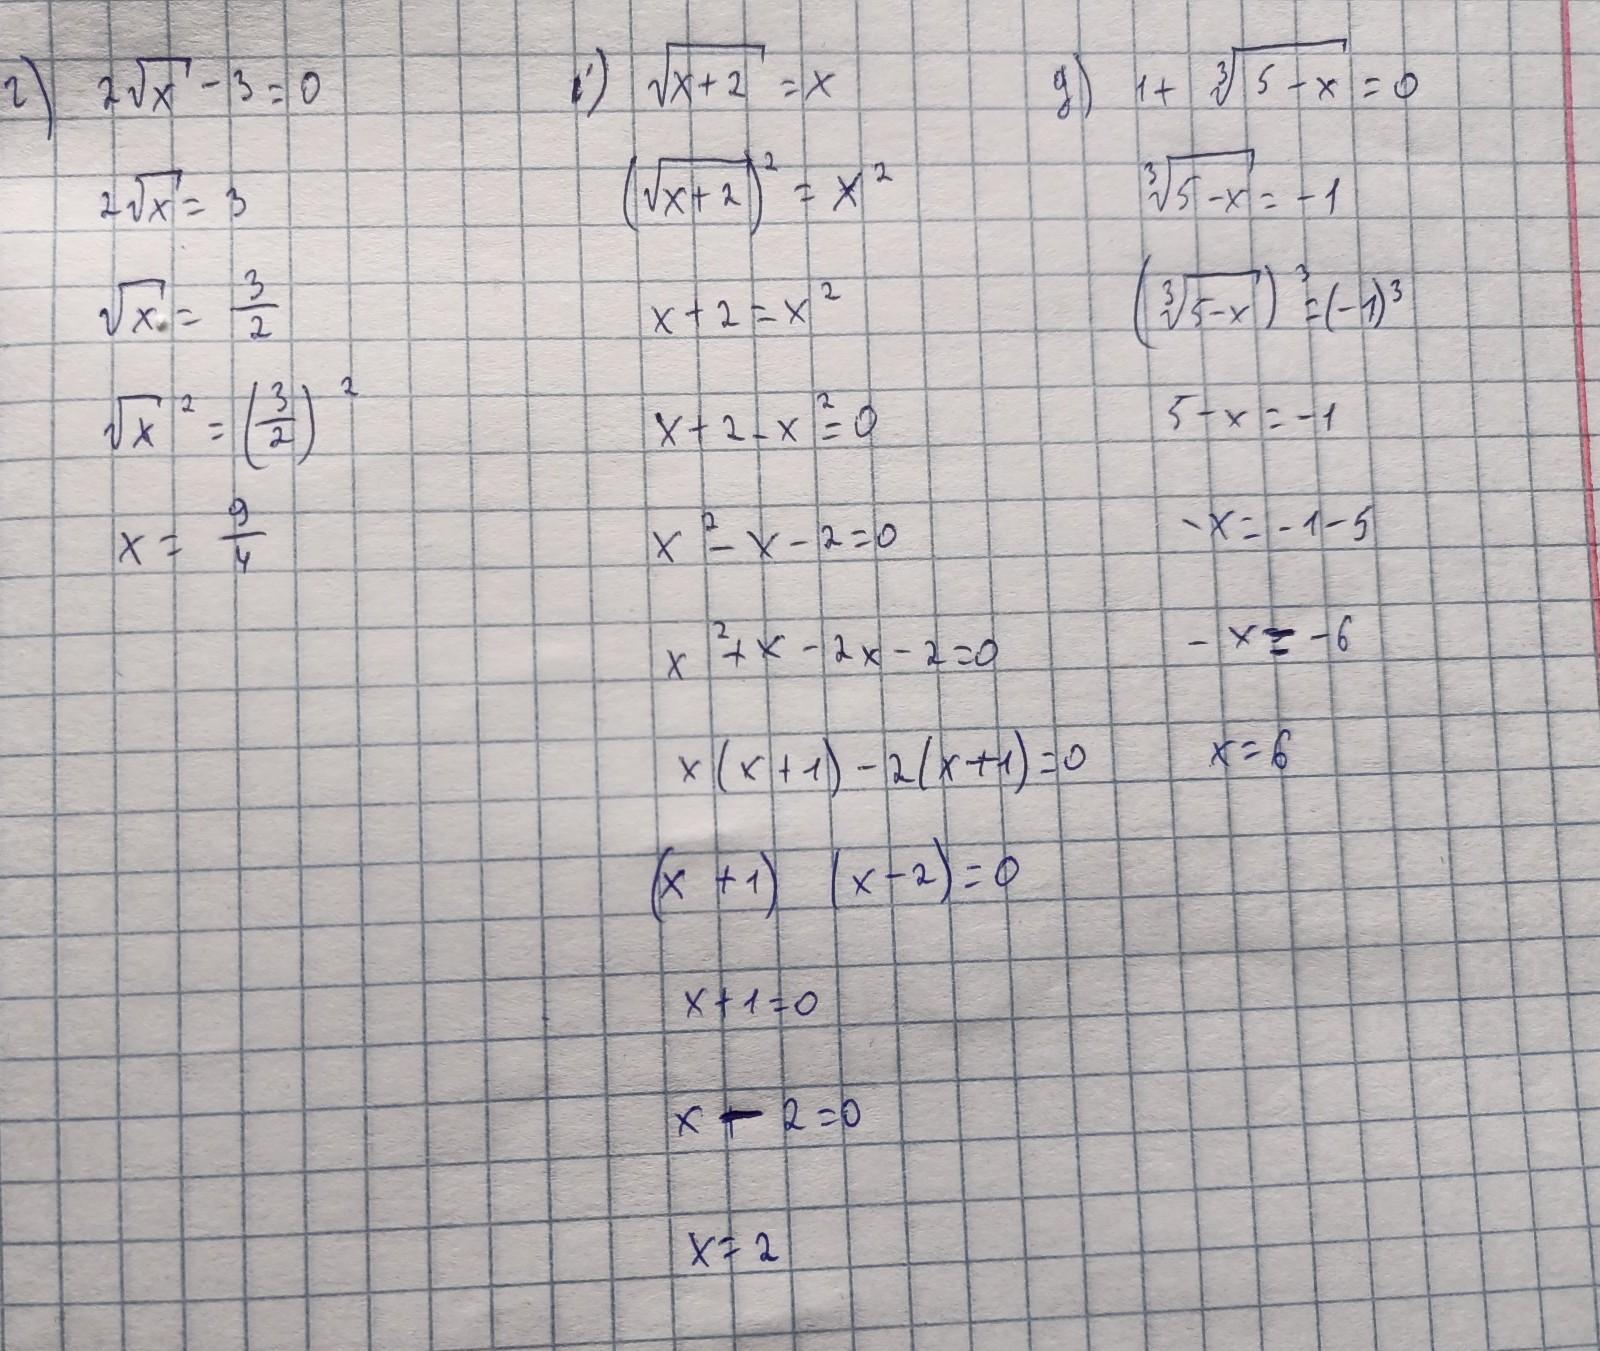 г) 2√x - 3 = 0
2√x = 3
√x = 3/2
√x ² = (3/2)²
x = 9/4
) √(x+2) = x
(√(x+2))² = x²
x + 2 = x²
x + 2 - x² = 0
x² - x - 2 = 0
x² + x - 2x - 2 = 0
x(x+1) - 2(x+1) = 0
(x+1) (x-2) = 0
x + 1 = 0
x - 2 = 0
x = 2
д) 1 + ∛(5-x) = 0
∛(5-x) = -1
(∛(5-x))³ = (-1)³
5 - x = -1
-x = -1 - 5
-x = -6
x = 6